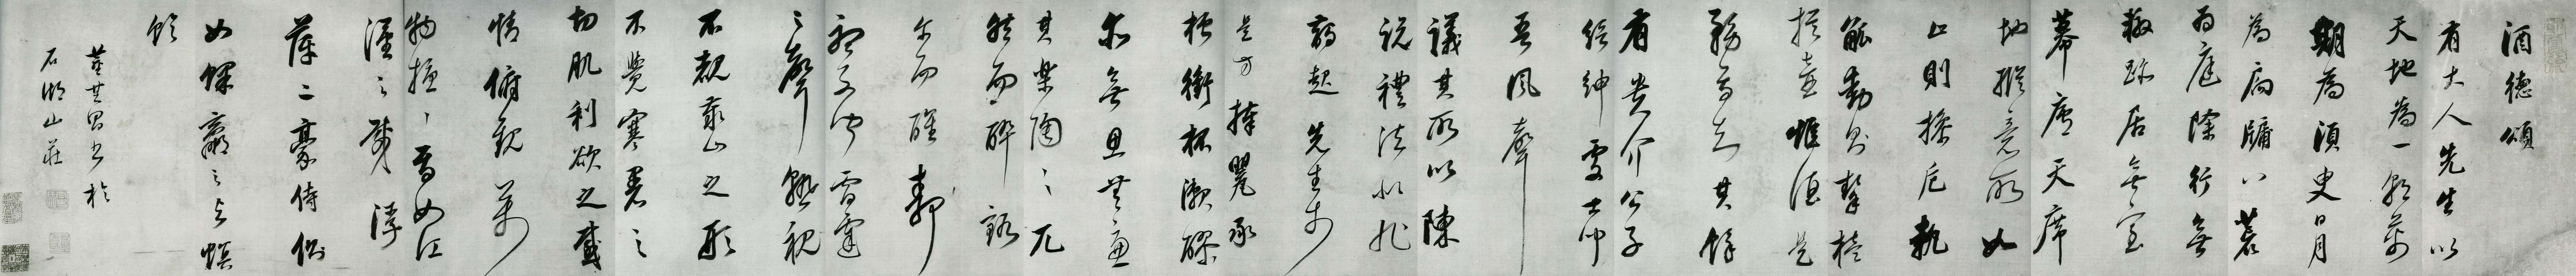 酒德頌
有大人先生以
天地為一朝萬
期為須臾日月
為扃牖八荒
為庭除行無
轍跡居無室
幕廬天席
地縱意所如
止則操卮執
觚動則挈榼
提壺惟酒是
務焉知其餘
有貴介公子
縉紳處士聞
吾風聲
議其所以陳
說禮法是非
起先生於
是方捧甖承
槽銜杯漱醪
無思無慮
其樂陶〻兀
然而醉豁
尒而醒靜
聽不聞雷霆
之聲熟視
不覩泰山之形
不覺寒暑之
切肌利欲之感
情俯觀萬
物擾〻焉如江
漢之載浮
萍二豪侍側
如蜾蠃之與螟
蛉
董其昌書於
石湖山莊